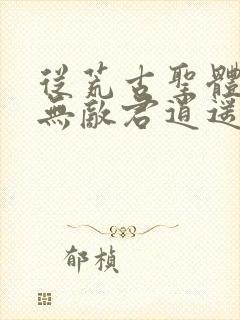 從荒古聖體
無敵君逍遥
郁楨